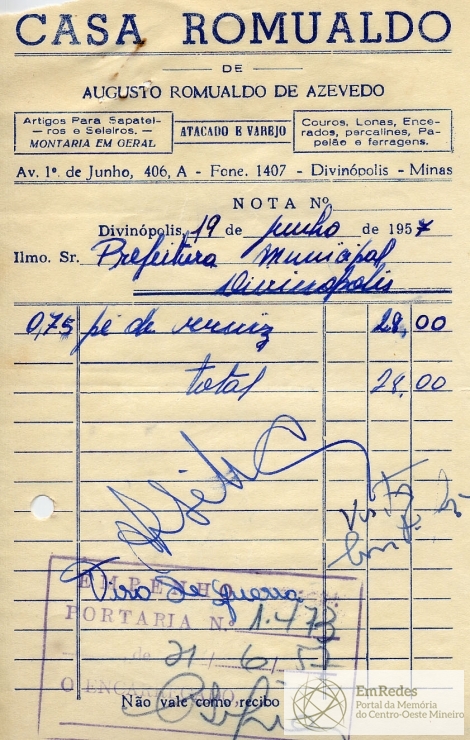 CASA ROMUALDO
DE
AUGUSTO ROMUALDO DE AZEVEDO
Artigos Para Sapatei-
— ros e Seleiros. —
MONTARIA EM GERAL
ATACADO E VAREJO
Couros, Lonas, Ence-
rados, percalines, Pa-
pelão e ferragens.
Av. 1º. de Junho, 406, A - Fone. 1407 - Divinópolis - Minas
NOTA Nº
Divinópolis, 19 de junho de 1957
Ilmo. Sr. Prefeitura Municipal
Divinópolis
0,75 pé de 28,00
total 28,00
Tiro de guerra
EMPENHO
PORTARIA N. 1.473
de 21/6/57
O ENCARREGADO
Não vale como recibo
EmRedes
Portal da Memória
do Centro-Oeste Mineiro